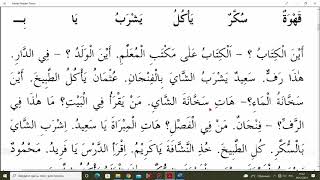 قَهْوَةٌ سُكَّرٌ يَأْكُلُ يَشْرَبُ يَا بِـ
أَيْنَ الْكِتَابُ ؟ – اَلْكِتَابُ عَلَى مَكْتَبِ الْمُعَلِّمِ. أَيْنَ الْوَلَدُ ؟ – فِي الدَّارِ.
هٰذَا رَفٌّ. سَعِيدٌ يَشْرَبُ الشَّايَ بِالْفِنْجَانِ. عُثْمَانُ يَأْكُلُ الطَّبِيخَ. أَيْنَ
سَخَّانَةُ الْمَاءِ؟ – هَاتِ سَخَّانَةَ الشَّايِ. مَنْ يَقْرَأُ فِي الْبَيْتِ؟ مَا هٰذَا فِي
الرَّفِّ؟ – فِنْجَانٌ. مَنْ فِي الْفَصْلِ؟ هَاتِ الْمِبْرَاةَ يَا سَعِيدُ. اِشْرَبِ الشَّايَ
بِالسُّكَّرِ. كُلِ الطَّبِيخَ. خُذِ النَّشَّافَةَ يَاكَرِيمُ. اِقْرَأِ الدَّرْسَ يَا فَرِيدُ. مَحْمُودٌ